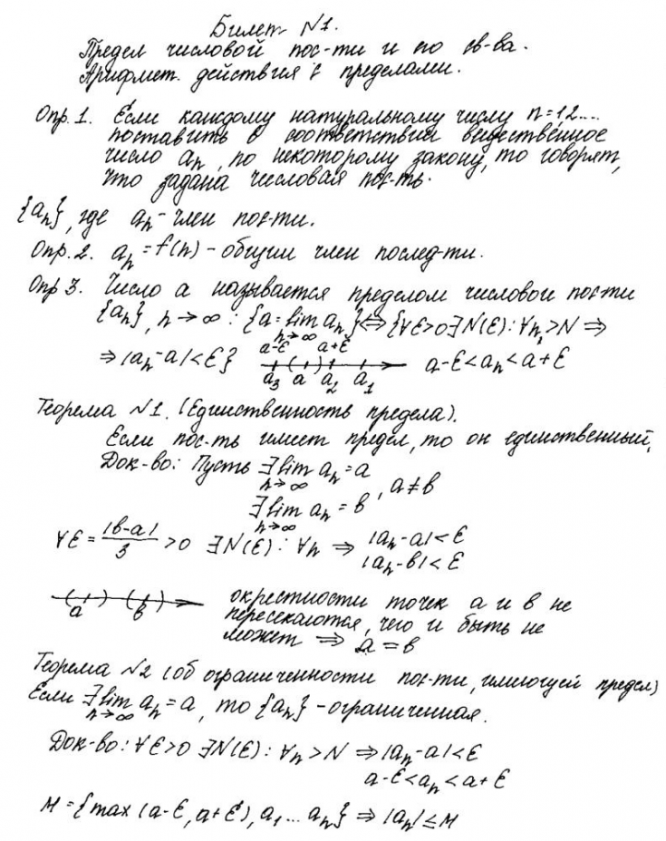 Билет №1.
Предел числовой пос-ти и его св-ва.
Арифмет. действия с пределами.
Опр. 1. Если каждому натуральному числу n=1,2....
поставить в соответствии вещественное
число aₙ, по некоторому закону, то говорят,
что задана числовая пос-ть.
{aₙ}, где aₙ - член пос-ти.
Опр. 2. aₙ = f(n) - общий член послед-ти.
Опр 3. Число a называется пределом числовой пос-ти
{aₙ}, n→∞ : {a = lim aₙ} ⇔ {∀ε>0 ∃N(ε): ∀n, >N ⇒
n→∞
⇒ |aₙ-a|<ε} a-ε a+ε a-ε<aₙ<a+ε
a₃ a a₂ a₁
Теорема №1. (Единственность предела).
Если пос-ть имеет предел, то он единственный.
Док-во: Пусть ∃ lim aₙ = a
n→∞ , a≠b
∃ lim aₙ = b
n→∞
∀ε = |b-a|/3 >0 ∃N(ε): ∀n ⇒ |aₙ-a|<ε
|aₙ-b|<ε
a b окрестности точек a и b не
пересекаются, чего и быть не
может ⇒ a=b
Теорема №2 (об ограниченности пос-ти, имеющей предел)
Если ∃ lim aₙ = a, то {aₙ} - ограниченная.
n→∞
Док-во: ∀ε>0 ∃N(ε): ∀n>N ⇒ |aₙ-a|<ε
a-ε<aₙ<a+ε
M = {max (a-ε, a+ε), a₁...aₙ} ⇒ |aₙ|≤M